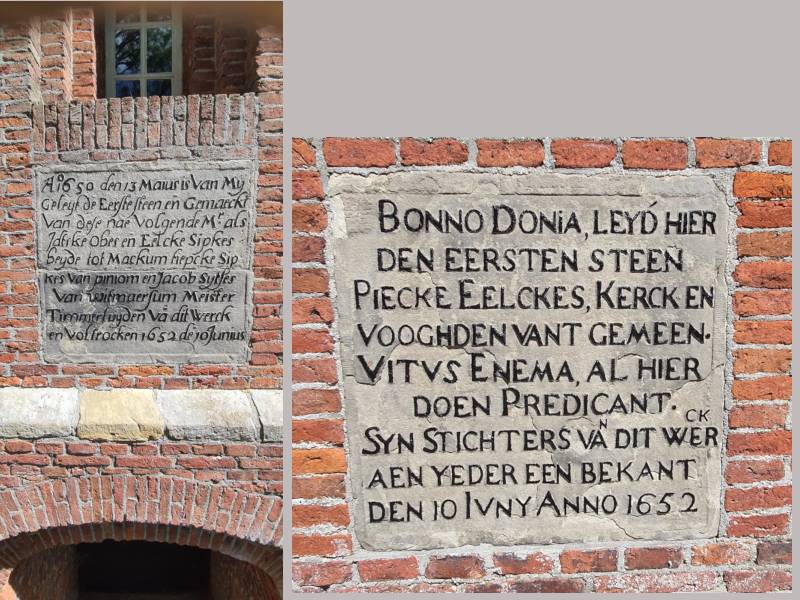 Aº1650 den 13 Maius is Van My
Geleyt de Eerste steen en Gemaeckt
Van dese nae Volgende Mr als
Obes en Eelcke Sipkes
beyde tot Mackum hepcke Sip
kes Van pinIom en Jacob Sytses
Van witmaersum Meister
Timmerluyden Vā dit Werck
en Voltrocken 1652 de 10 Junius
BONNO DONIA, LEYD HIER
DEN EERSTEN STEEN
PIECKE EELCKES, KERCK EN
VOOGHDEN VANT GEMEEN.
VITVS ENEMA, AL HIER
DOEN PREDICANT.
SYN STICHTERS VAN DIT WERCK
AEN YEDER EEN BEKANT
DEN 10 IVNY ANNO 1652